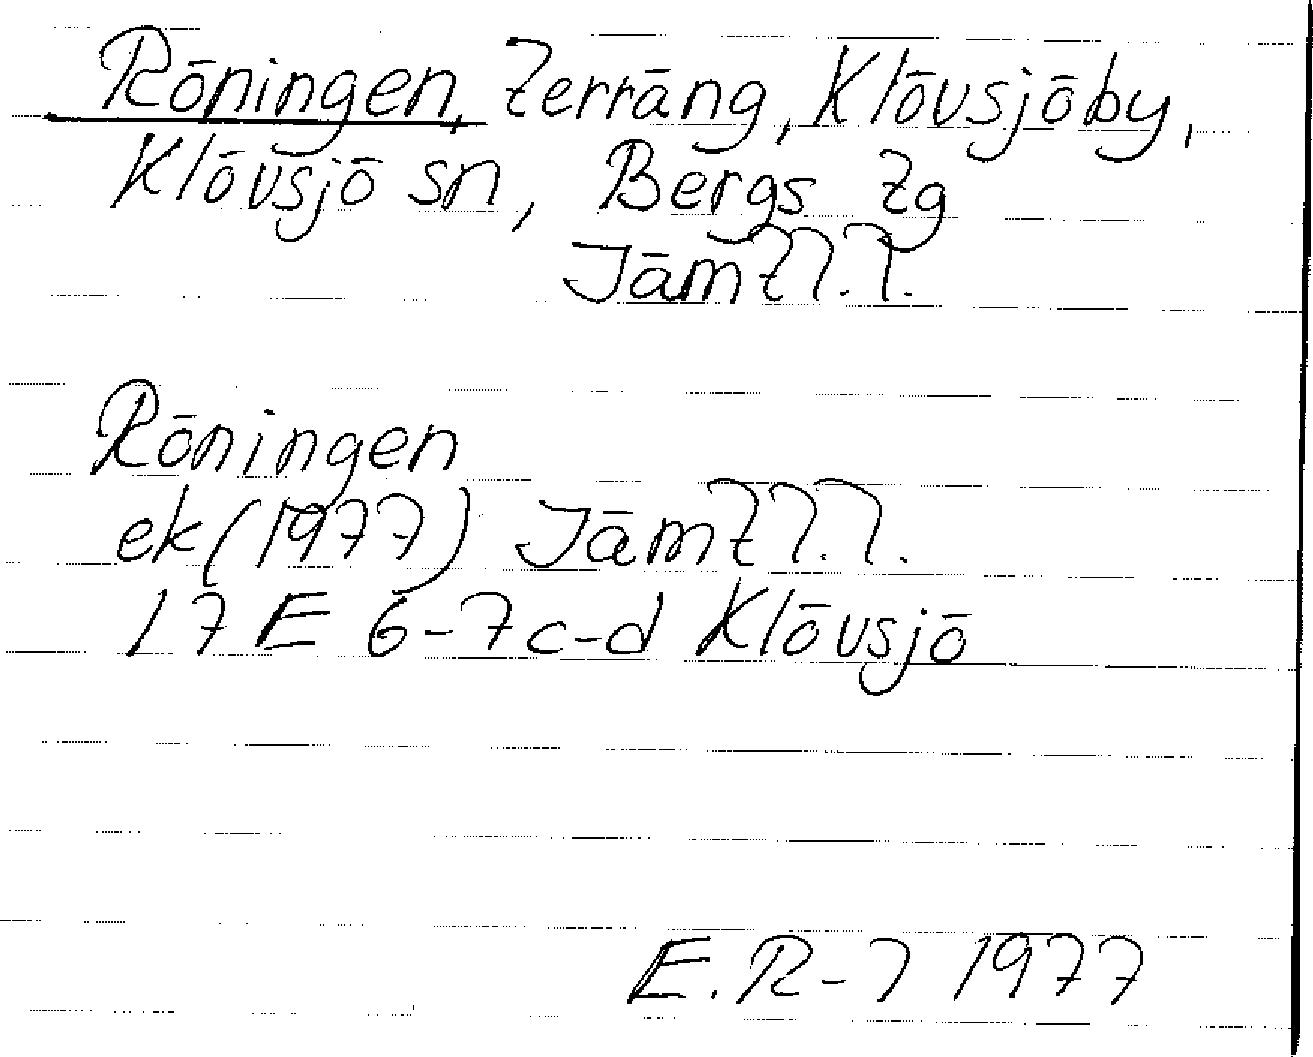 Röningen, terräng, Klövsjöby,
Klövsjö sn, Bergs tg
Jämtl.l.
Röningen
ek (1977) Jämtl.l.
17E 6-7c-d Klövsjö
E. R-l 1977